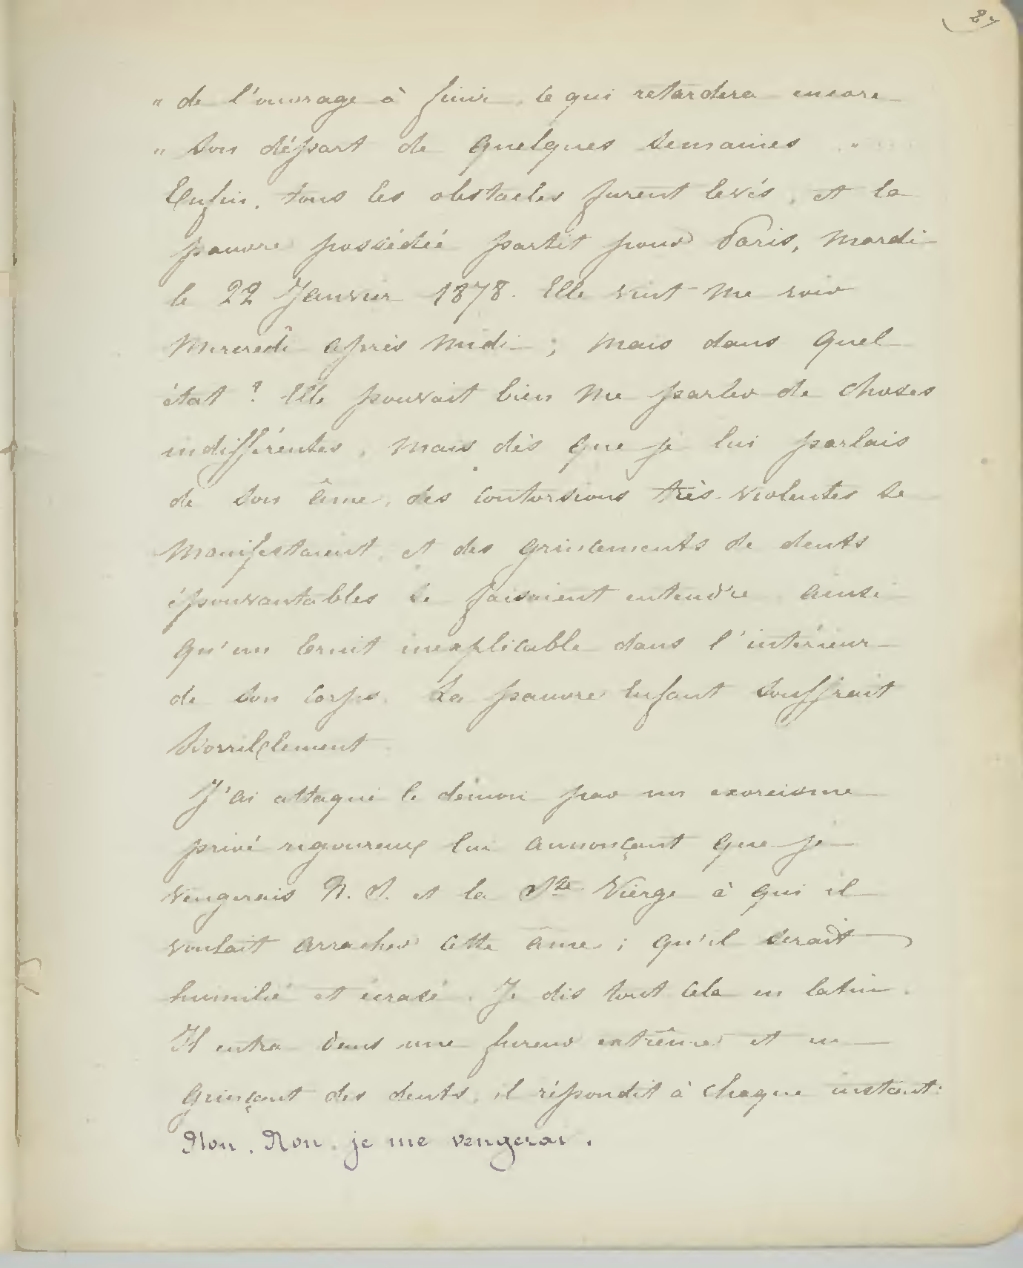 27
" de l'ouvrage à finir, ce qui retardera encore
" son départ de quelques semaines. "
Enfin, tous les obstacles furent levés, et la
pauvre possédée partit pour Paris, mardi
le 22 Janvier 1878. Elle vint me voir
Mercredi après midi ; mais dans quel
état ? Elle pouvait bien me parler de choses
indifférentes, mais dès que je lui parlais
de son âme, des contorsions très-violentes se
manifestaient, et des grincements de dents
épouvantables se faisaient entendre ainsi
qu'un bruit inexplicable dans l'intérieur
de son corps. La pauvre enfant souffrait
horriblement.
J'ai attaqué le démon par un exorcisme
privé rigoureux lui annonçant que je
vengerais N. S. et la Ste Vierge à qui il
voulait arracher cette âme ; qu'il serait
humilié et écrasé. Je dis tout cela en latin.
Il entra dans une fureur extrême et en
grinçant des dents, il répondit à chaque instant :
Non, Non, je me vengerai.